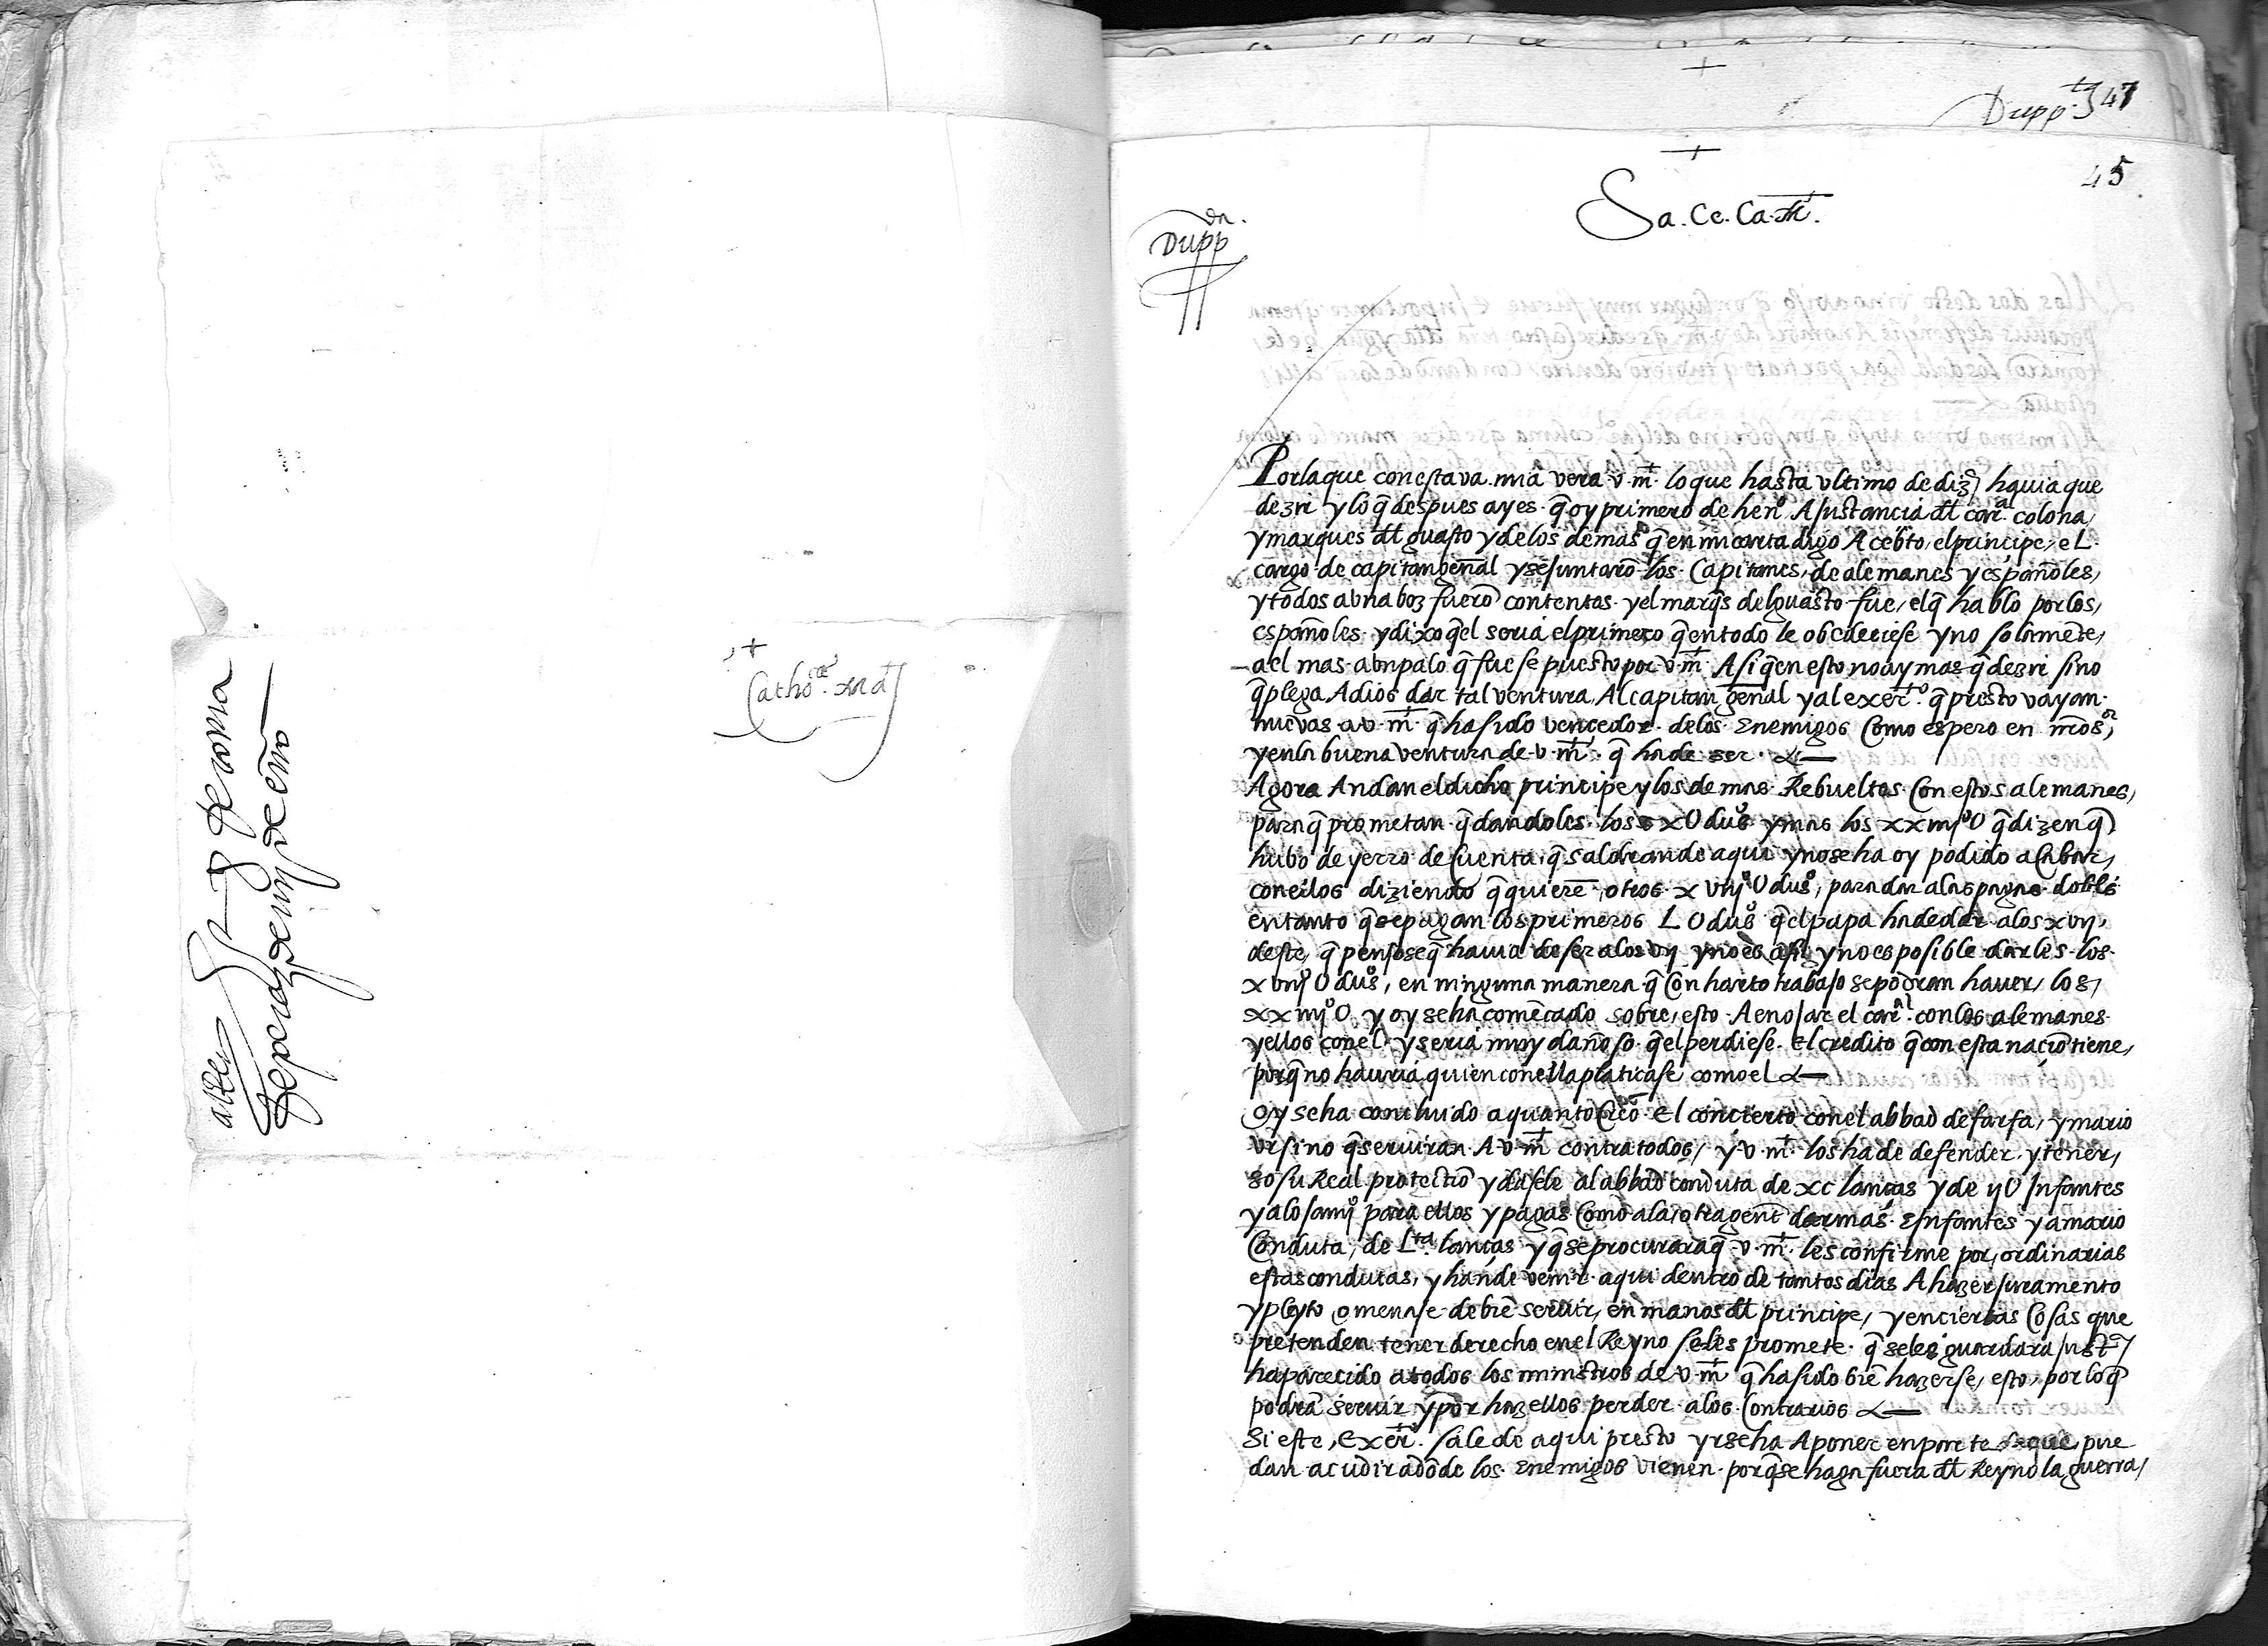 Cathoca. mad
Dupp.ta 47
45
Sa. Ce. Ca. M.
Duppda.
Por la que con esta va. mia vera v. mt. lo que hasta vltimo de diz̄e hauia que
dezir y lo q̄ despues ay es. q̄ oy primero de henro A sustancia dl car.al colona,
y marques dl guasto y de los demas q̄ en mi carta digo Acebto, el principe, el
cargo de capitan genāl y se juntarō los. Capitanes, de alemanes y españoles,
y todos a bna boz fuerō contentos. y el marq̄s del guasto fue, el q̄ hablo por los,
españoles. y dixo q̄ el seria el primero q̄ en todo le obedeciese y no solamēte,
a el mas. a bn palo q̄ fuese puesto por v. mt. Asi q̄ en esto no ay mas q̄ dezir sino
q̄ plega A dios dar tal ventura, Al capitan genāl y al exerto. q̄ presto vayan.
nuevas a v. mt. q̄ ha sido vencedor. de los Enemigos Como espero en nr̄o sor,
y en la buena ventura de. v. mt. q̄ ha de ser.
Agora Andan el dicho principe y los de mas Rebueltos. Con estos alemanes,
para q̄ prometan. q̄ dandoles. los xU dus. y mas los xxiiijoU q̄ dizen q̄
hubo de yerro de cuenta, q̄ saldran de aqui y no se ha oy podido acabar,
con ellos diziendo q̄ quierē, otros. x viijoU dus, para dar a las pagas dobles
entanto q̄ se pagan los primeros L U dus q̄ el papa ha de dar a los xvij,
deste, q̄ penso se q̄ hauia de ser a los vij y no es asi, y no es posible darles. los.
xviijoU dus, en ninguna manera. q̄ Con harto trabajo se podran hauer, los,
xxiiijoU. y oy se ha comēcado sobre, esto. A enojar el car.al con los alemanes.
y ellos con el. y seria muy dañoso. q̄ el perdiese. el credito q̄ con esta naciō tiene,
porq̄ no hauria quien con ella platicase como el
Oy se ha concluido a quanto creo. el concierto con el abbad de farfa, y mario
vrsino q̄ seruiran. A v. mt contra todos, y v. mt. los ha de defender. y tener,
so su Real protectiō y dasele al abbad conduta de xc lanças y de ijU Infantes
y alojamio para ellos y pagas Como a la otra gente darmas. E Infantes y a mario
Conduta, de Lta. lanças y q̄ se procurara q̄ v. mt. les confirme por, ordinarias
estas condutas, y han de venir. aqui dentro de tantos dias A hazer juramento
y pleyto omenaje. de biē seruir, en manos dl principe, y en ciertas Cosas que
pretenden tener derecho en el Reyno se les promete. q̄ se les guardara justa
ha parecido a todos los ministros de v. mt q̄ ha sido biē hazerse, esto, por lo q̄
podrā seruir y por hazellos perder a los. Contrarios
Si este, exerto. sale de aqui presto yrse ha A poner en parte de que pue
dan acudir adōde los Enemigos vienen. porq̄ se haga fuera dl Reyno la guerra,